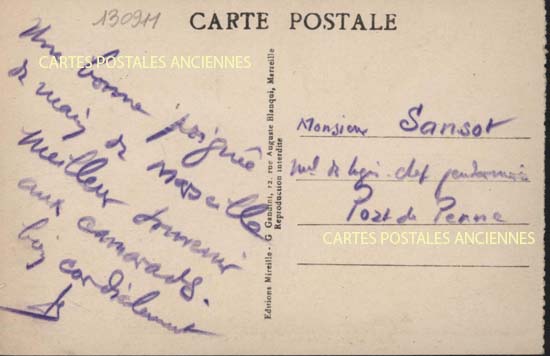 130911
CARTE POSTALE
Une bonne poignée
de main de Marseille
meilleur souvenir
aux camarades.
bien cordialement
CARTES POSTALES ANCIENNES
Editions Mireille - G Gandini, 12, rue Auguste Blanqui, Marseille
Reproduction interdite
Monsieur Sansot
mal de logis chef gendarmerie
Port de Penne
CARTES POSTALES ANCIENNES